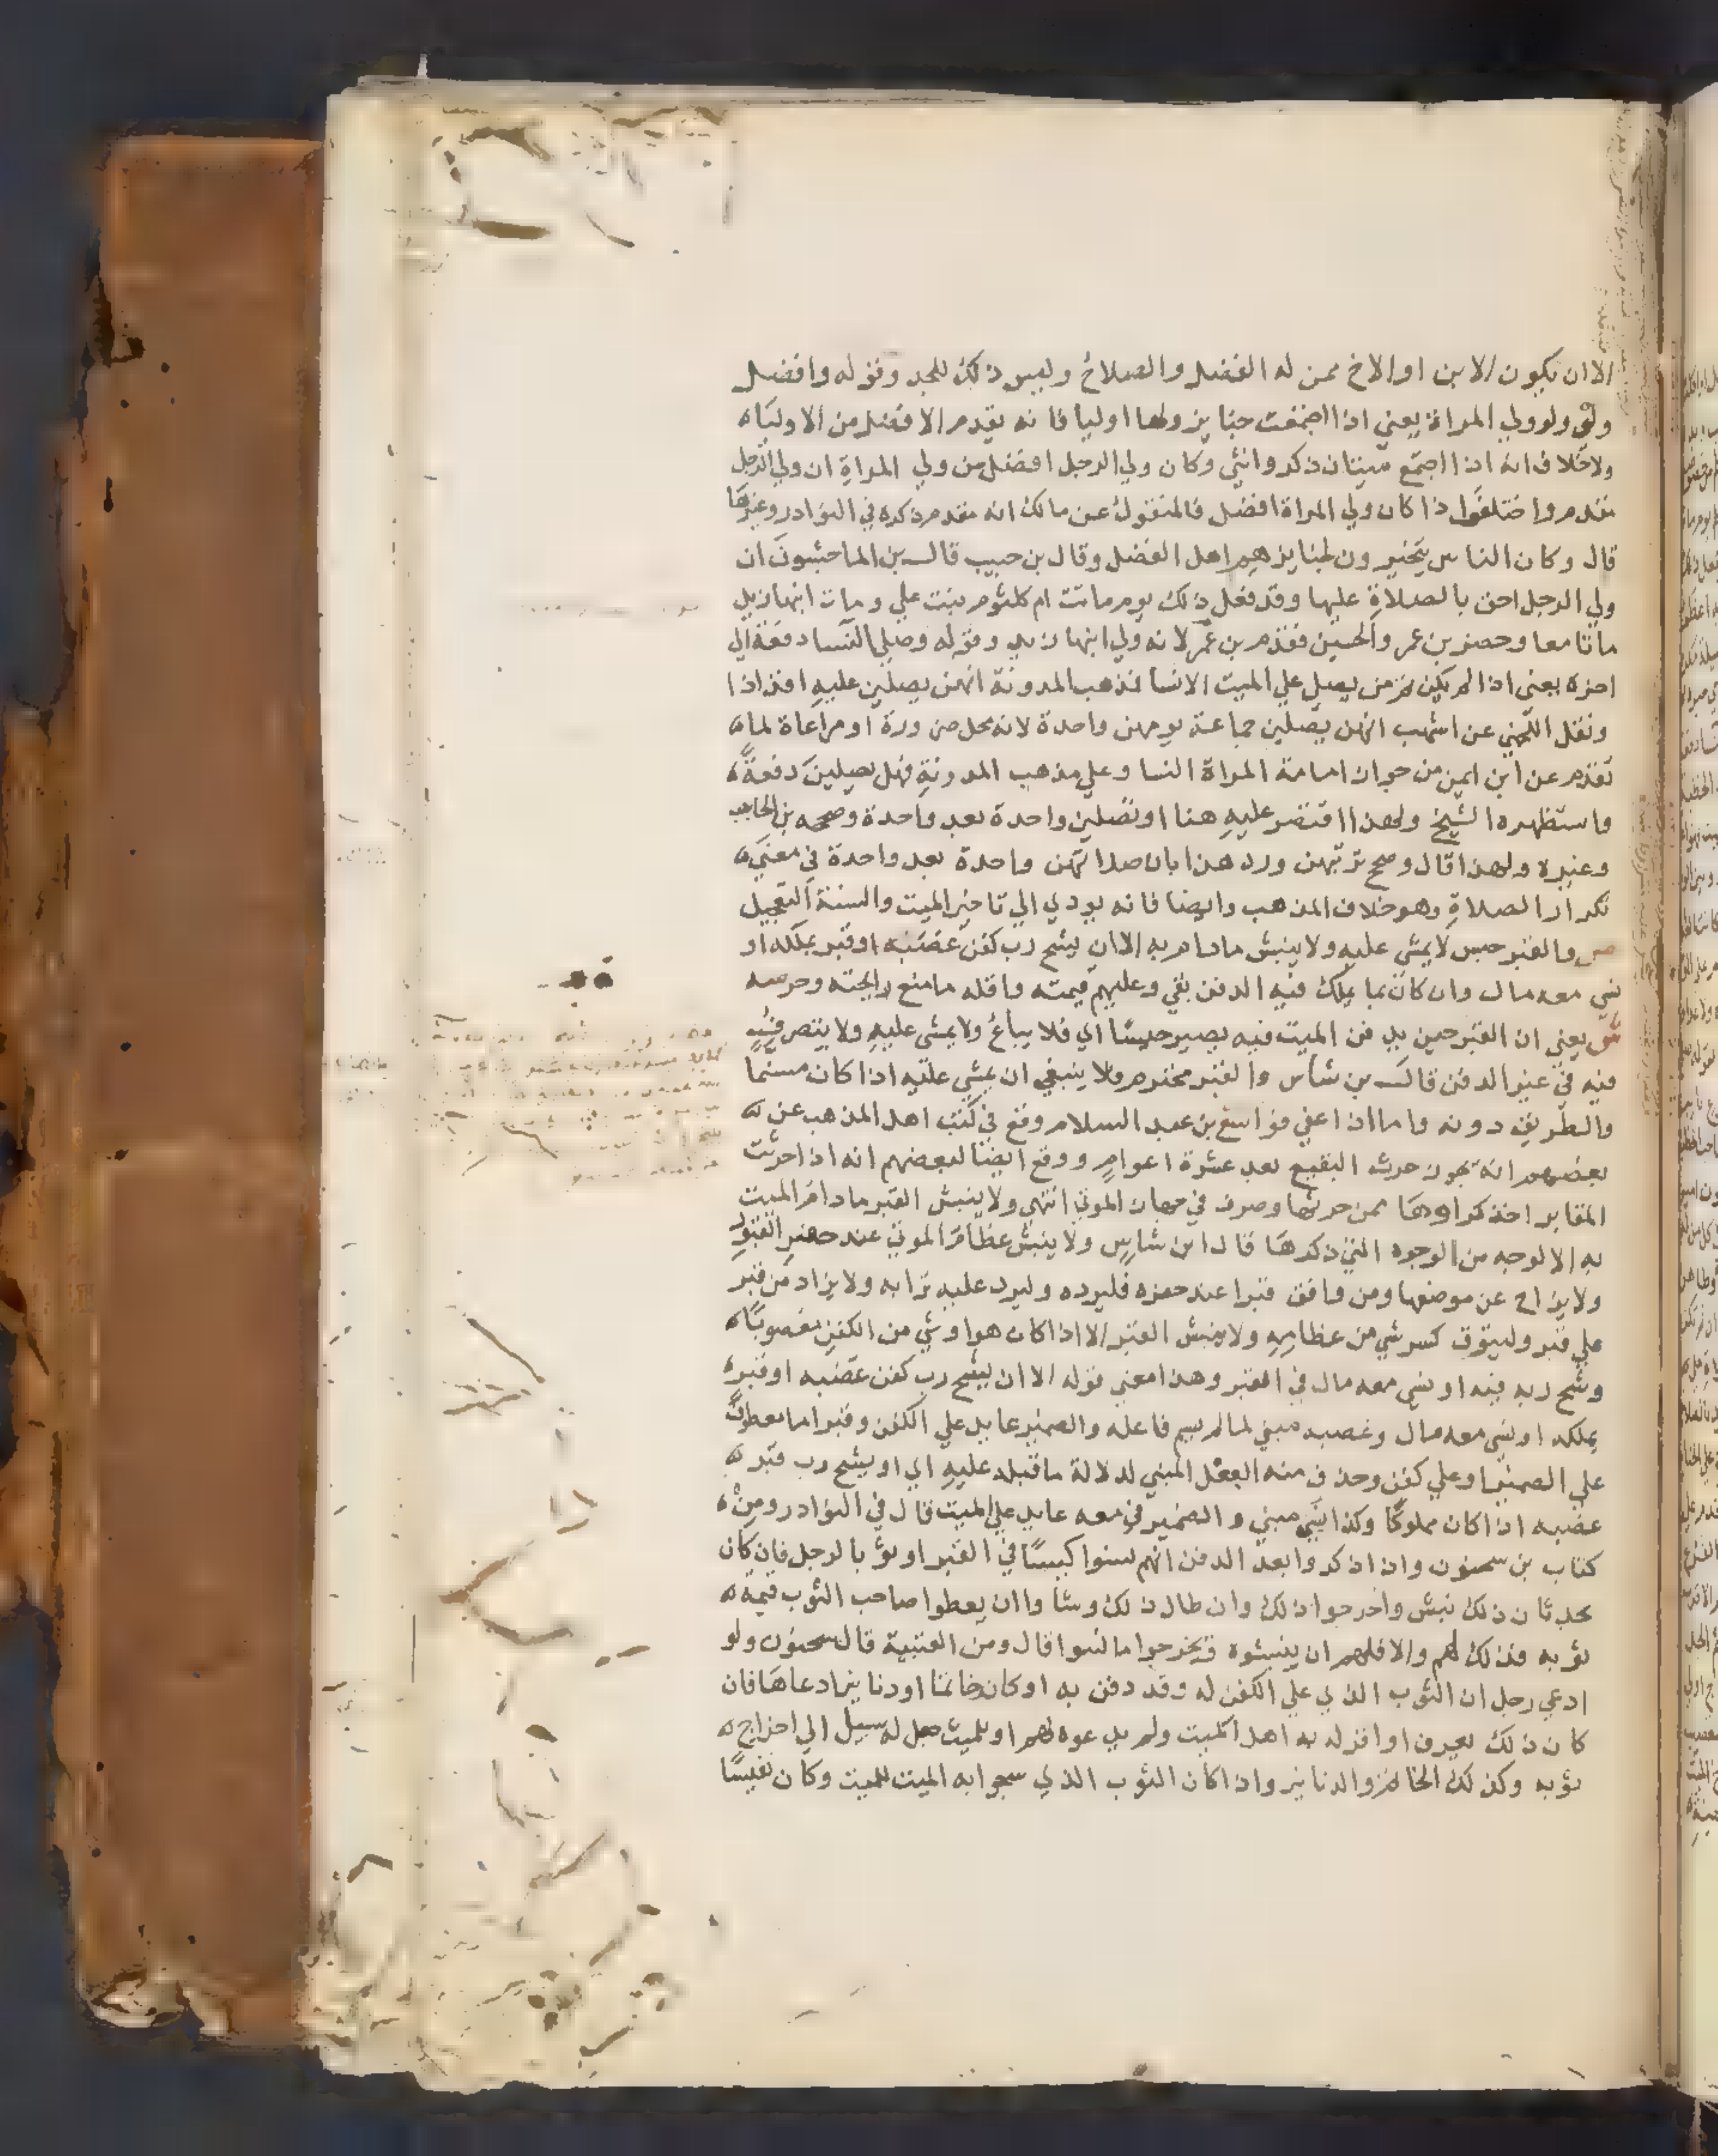 الا ان يكون الابن او الاخ ممن له الفضل والصلاح وليس ذلك للجد وقوله وافضل
ولي ولو ولي المراة يعني اذا اجتمعت جنايز ولها اوليا فانه يقدم الافضل من الاوليا
ولا خلاف انه اذا اجتمع ميتان ذكر وانثي وكان ولي الرجل افضل من ولي المراة ان ولي الرجل
يقدم واختلفوا اذا كان ولي المراة افضل فالمنقول عن مالك انه يقدم ذكره في النوادر وغيرها
قال وكان الناس يتخيرون لجنايزهم اهل الفضل وقال بن حبيب قال بن الماجشون ان
ولي الرجل احق بالصلاة عليها وقد فعل ذلك يوم ماتت ام كلثوم بنت علي ومات ابنها زيد
ماتا معا وحضر بن عمر والحسين فقدم بن عمر لانه ولي ابنها زيد وقوله وصلي النسا دفعة الي
اخره يعني اذا لم يكن ثم من يصلي علي الميت الا النسا فمذهب المدونة انهن يصلين عليه افذاذا
ونقل اللخمي عن اشهب انهن يصلين جماعة يومهن واحدة لانه محل ضرورة او مراعاة لما
تقدم عن ابن ايمن من جواز امامة المراة النسا وعلي مذهب المدونة فهل يصلين دفعة
واستظهره الشيخ ولهذا اقتصر عليه هنا او تصلين واحدة بعد واحدة وصححه بن الحاجب
وغيره ولهذا قال وصح ترتبهن ورد هذا بان صلاتهن واحدة بعد واحدة في معني
تكرار الصلاة وهو خلاف المذهب وايضا فانه يودي الي تاخير الميت والسنة التعجيل
ص والقبر حبس لا يمشي عليه ولا ينبش مادام به الا ان يشح رب كفن غصبه او قبر بملكه او
نسي معه مال وان كان بما يملك فيه الدفن بقي وعليهم قيمته واقله ما منع رايحته وحرسه
ش يعني ان القبر حين يدفن الميت فيه يصير حبسا اي فلا يباع ولا يمشي عليه ولا يتصرف
فيه في غير الدفن قال بن شاس والقبر محترم ولا ينبغي ان يمشي عليه اذا كان مسنما
والطريق دونه واما اذا عفي فواسع بن عبد السلام وقع في كتب اهل المذهب عن
بعضهم انه يجوز حرث البقيع بعد عشرة اعوام ووقع ايضا لبعضهم انه اذا حرثت
المقابر اخذ كراوها ممن حرثها وصرف في جهاز الموتي انتهي ولا ينبش القبر مادام الميت
به الا لوجه من الوجوه التي ذكرها قال ابن شاس ولا ينبش عظام الموتي عند حفر القبور
ولا يزاح عن موضعها ومن وافق قبرا عند حفره فليرده وليرد عليه ترابه ولا يزاد من قبر
علي قبر وليتوق كسر شي من عظامه ولا ينبش القبر الا اذا كان هو او شي من الكفن مغصوبا
وشح ربه فيه او نسي معه مال في القبر وهذا معني قوله الا ان يشح رب كفن غصبه او قبر
بملكه او نسي معه مال وغصب مبني لما لم يسم فاعله والضمير عايد علي الكفن وقبر اما معطوف
علي الضمير او علي كفن وحذف منه الفعل المبني لدلالة ما قبله عليه اي او يشح رب قبر
غصبه اذا كان مملوكا وكذا نسي مبني والضمير في معه عايد علي الميت قال في النوادر ومن
كتاب بن سحنون واذا ذكروا بعد الدفن انهم نسوا كيسا في القبر او ثوبا لرجل فان كان
بحدثان ذلك نبش واخرجوا ذلك وان طال ذلك وشاوا ان يعطوا صاحب الثوب قيمة
ثوبه فذلك لهم والا فلهم ان ينبشوه فيخرجوا ما نسوا قال ومن العتبية قال سحنون ولو
ادعي رجل ان الثوب الذي علي الكفن له وقد دفن به او كان خاتما او دنانير ادعاها فان
كان ذلك يعرف او اقر له به اهل الميت ولم يدعوه لهم او للميت جعل له سبيل الي اخراج
ثوبه وكذلك الخاتم والدنانير واذا كان الثوب الذي سجوا به الميت للميت وكان نفيسا